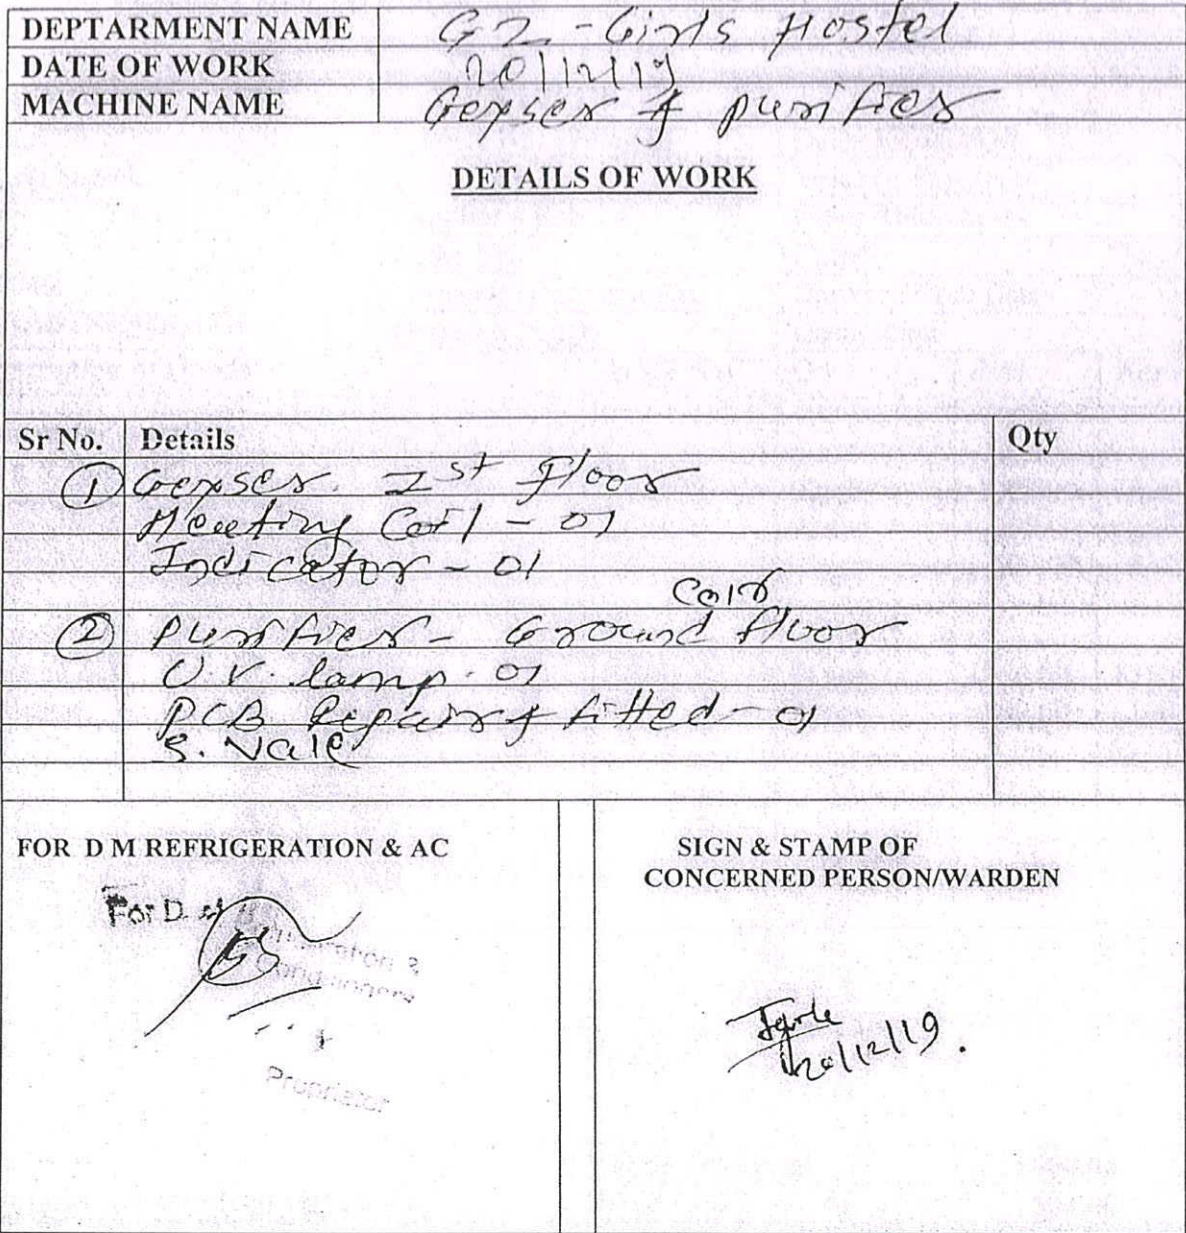 DEPTARMENT NAME G2 - Girls Hostel
DATE OF WORK 20/12/19
MACHINE NAME Geyser & purifier
DETAILS OF WORK
Sr No. Details Qty
① Geyser. Ist floor
Heating Coil - 01
Indicator - 01
② Purifier - Ground floor
U.V. lamp - 01
PCB Repair & fitted - 01
S. Vale
FOR D M REFRIGERATION & AC
SIGN & STAMP OF
CONCERNED PERSON/WARDEN
For D.
Proprietor
20/12/19.